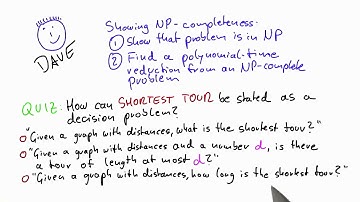 DAVE
Showing NP-completeness:
① Show that problem is in NP
② Find a polynomial-time
reduction from an NP-complete
problem
QUIZ: How can SHORTEST TOUR be stated as a
decision problem?
"Given a graph with distances, what is the shortest tour?"
"Given a graph with distances and a number d, is there
a tour of length at most d?"
"Given a graph with distances, how long is the shortest tour?"